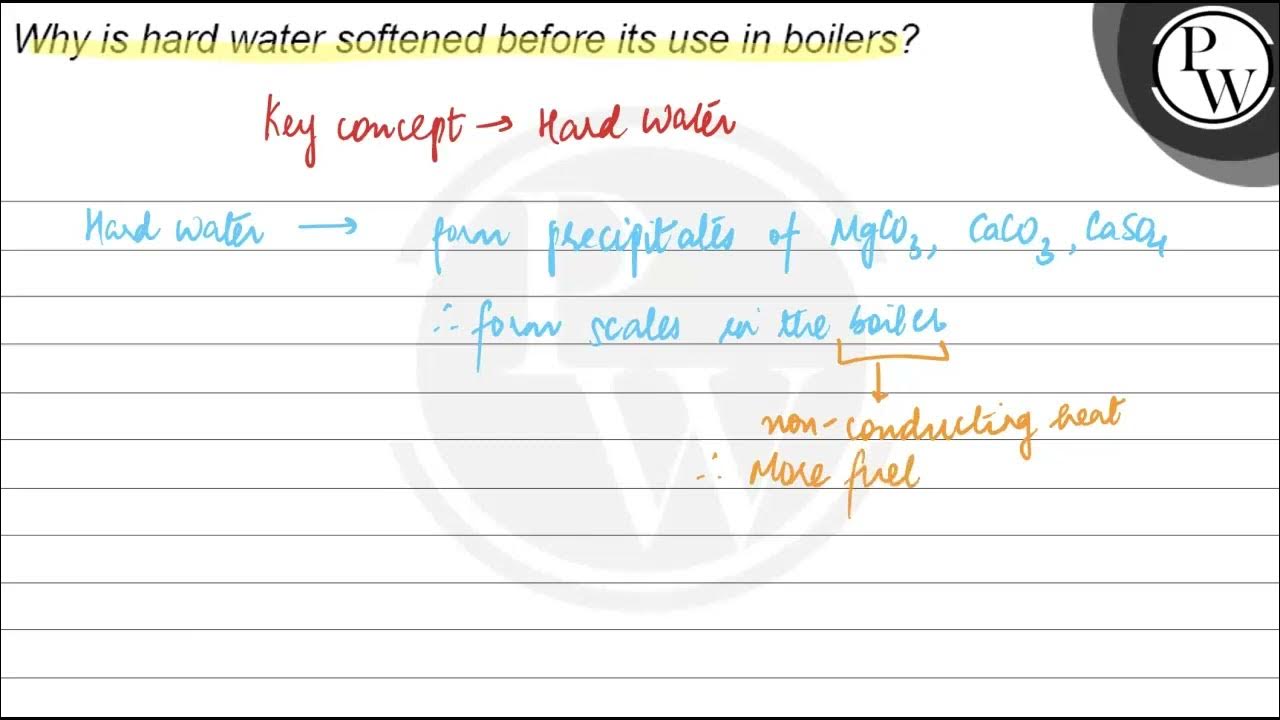 Why is hard water softened before its use in boilers?
P
W
Key concept → Hard Water
Hard water → form precipitates of MgCO₃, CaCO₃, CaSO₄
∴ form scales in the boiler
non-conducting heat
∴ More fuel
PW